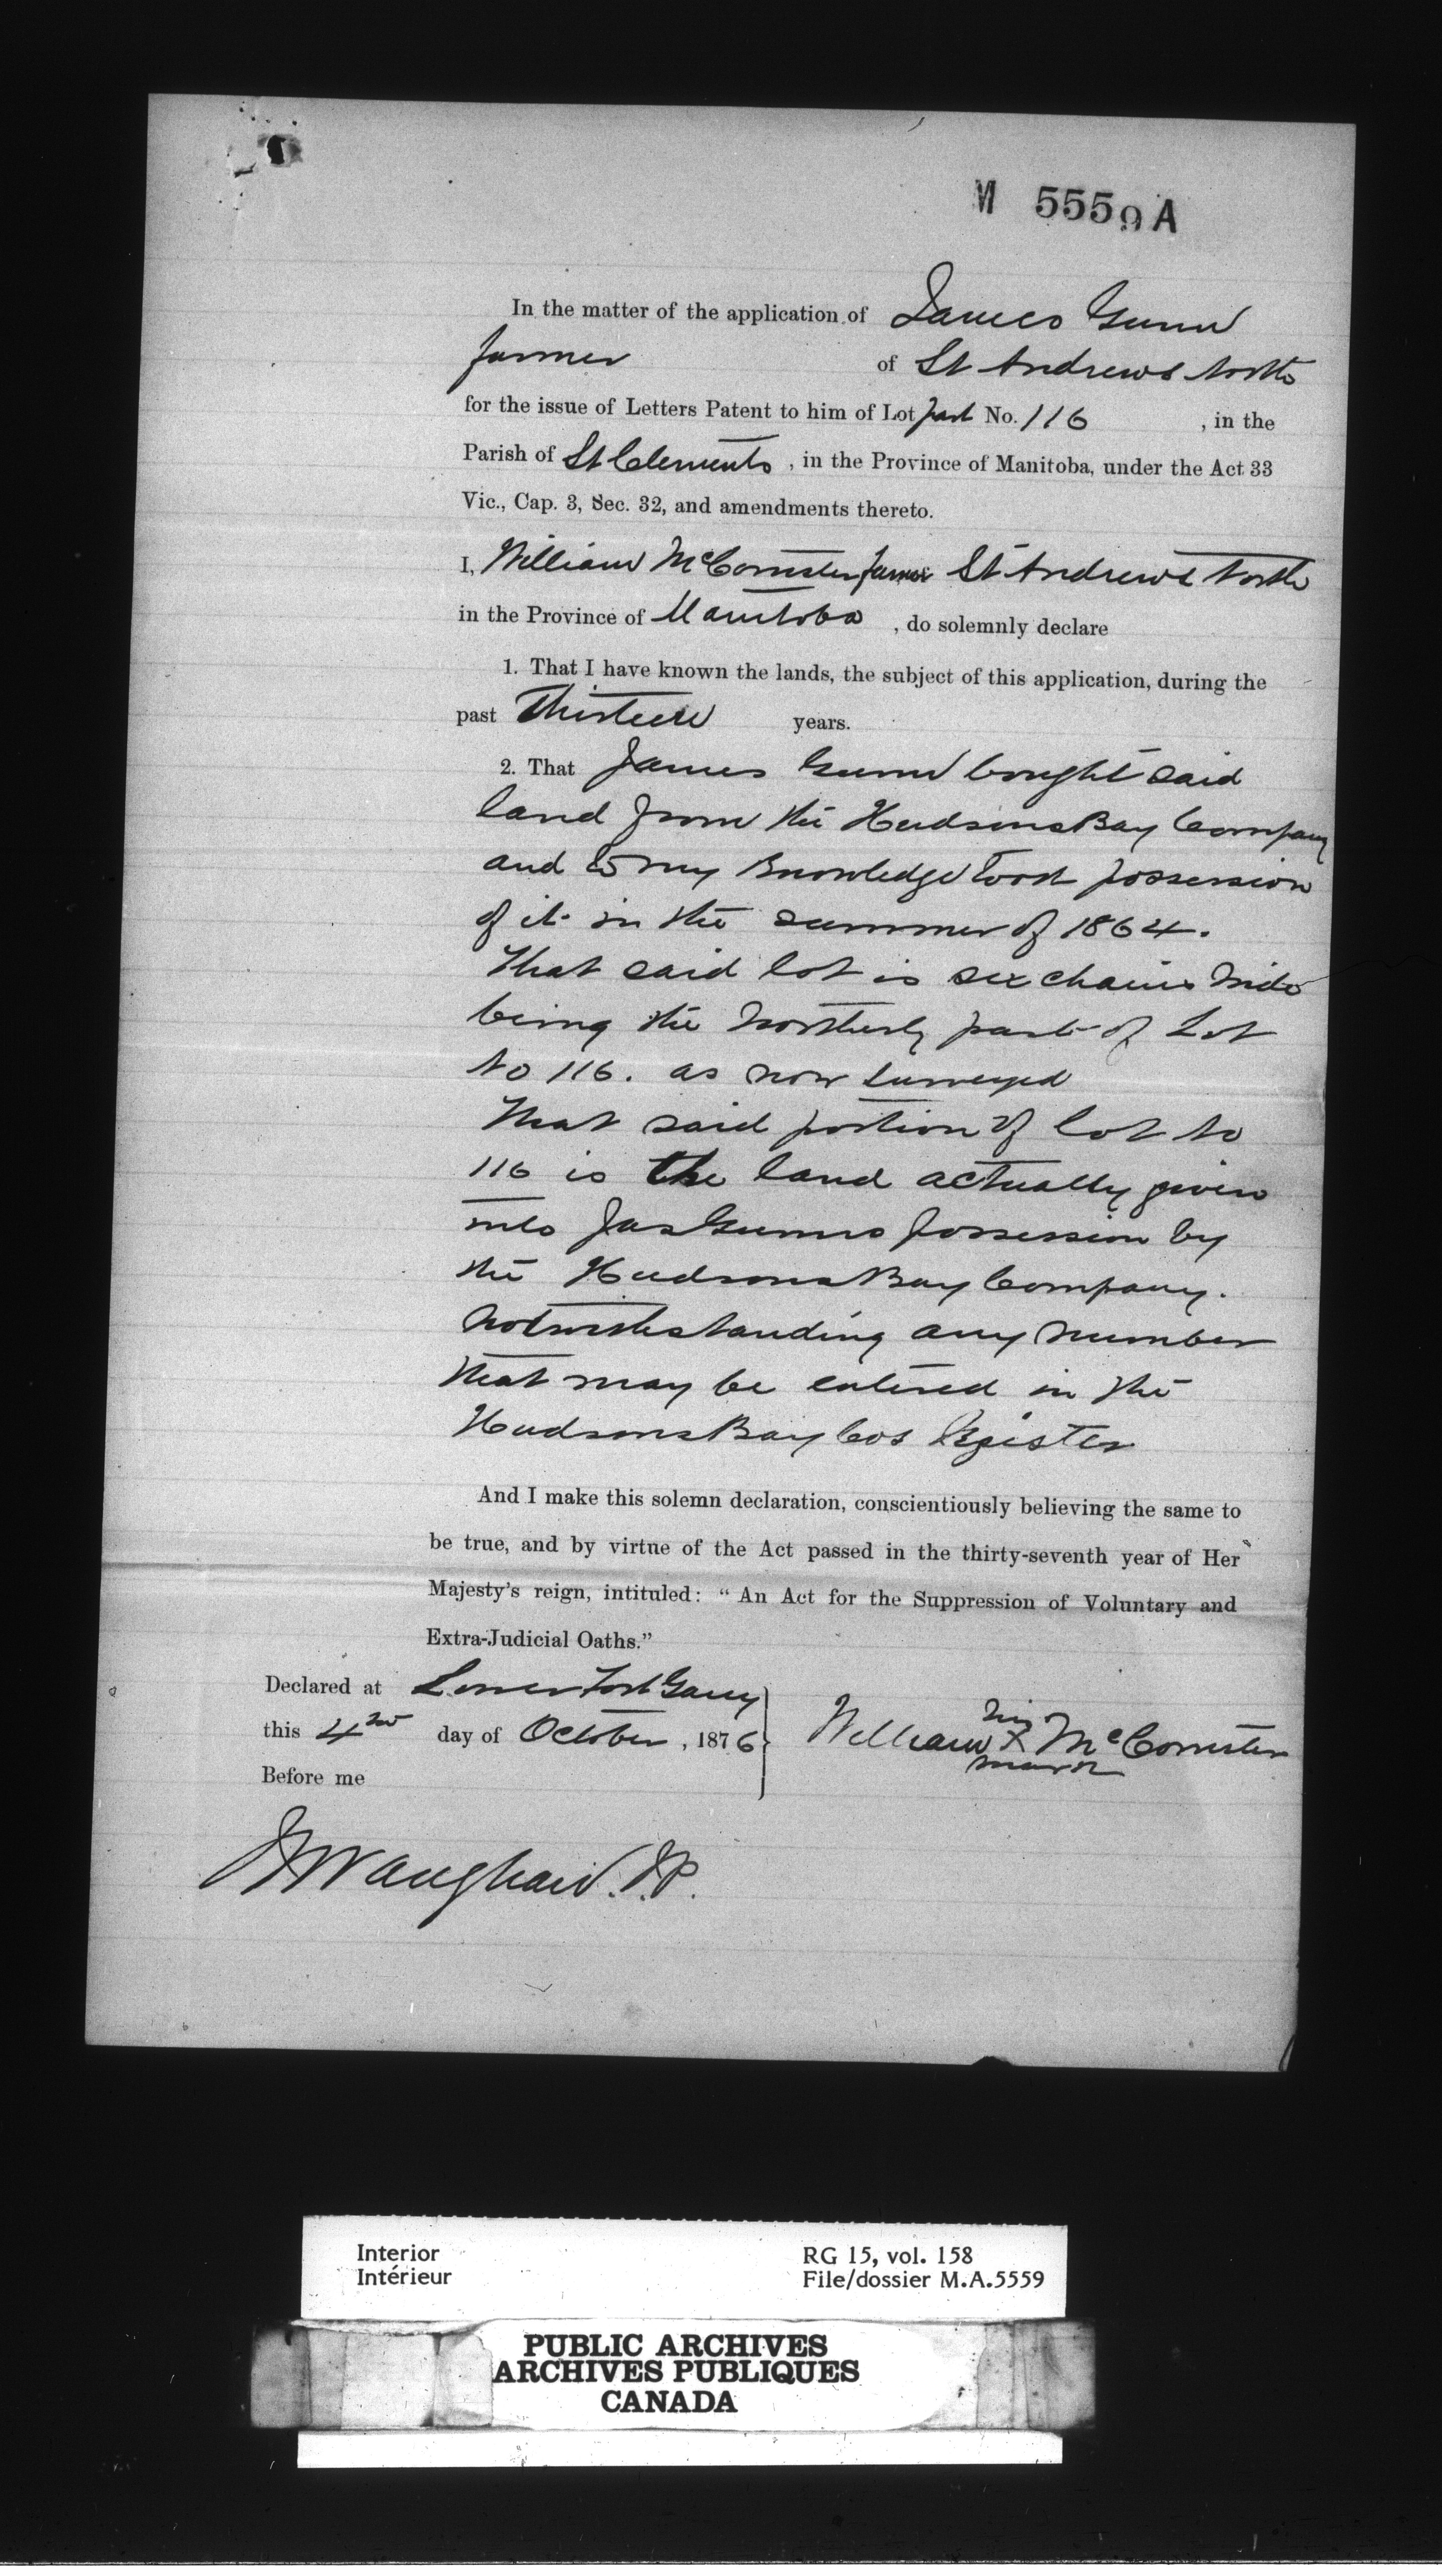 M 5559 A
In the matter of the application of James Gunn
farmer of St Andrews North
for the issue of Letters Patent to him of Lot part No. 116 , in the
Parish of St Clements , in the Province of Manitoba, under the Act 33
Vic., Cap. 3, Sec. 32, and amendments thereto.
I, William McCorrister farmer St Andrews North
in the Province of Manitoba , do solemnly declare
1. That I have known the lands, the subject of this application, during the
past Thirteen years.
2. That James Gunn bought said
land from the Hudsons Bay Company
and to my knowledge took possession
of it in the summer of 1864.
That said lot is six chains wide
being the Northerly part of Lot
No 116. as now surveyed
That said portion of lot No
116 is the land actually given
into Jas Gunns possession by
the Hudsons Bay Company.
notwithstanding any number
that may be entered in the
Hudsons Bay Cos Register
And I make this solemn declaration, conscientiously believing the same to
be true, and by virtue of the Act passed in the thirty-seventh year of Her
Majesty's reign, intituled: "An Act for the Suppression of Voluntary and
Extra-Judicial Oaths."
Declared at Lower Fort Garry
this 4 day of October , 1876
Before me
William his X mark McCorrister
Vaughan. J.P.
Interior
Intérieur
RG 15, vol. 158
File/dossier M.A.5559
PUBLIC ARCHIVES
ARCHIVES PUBLIQUES
CANADA